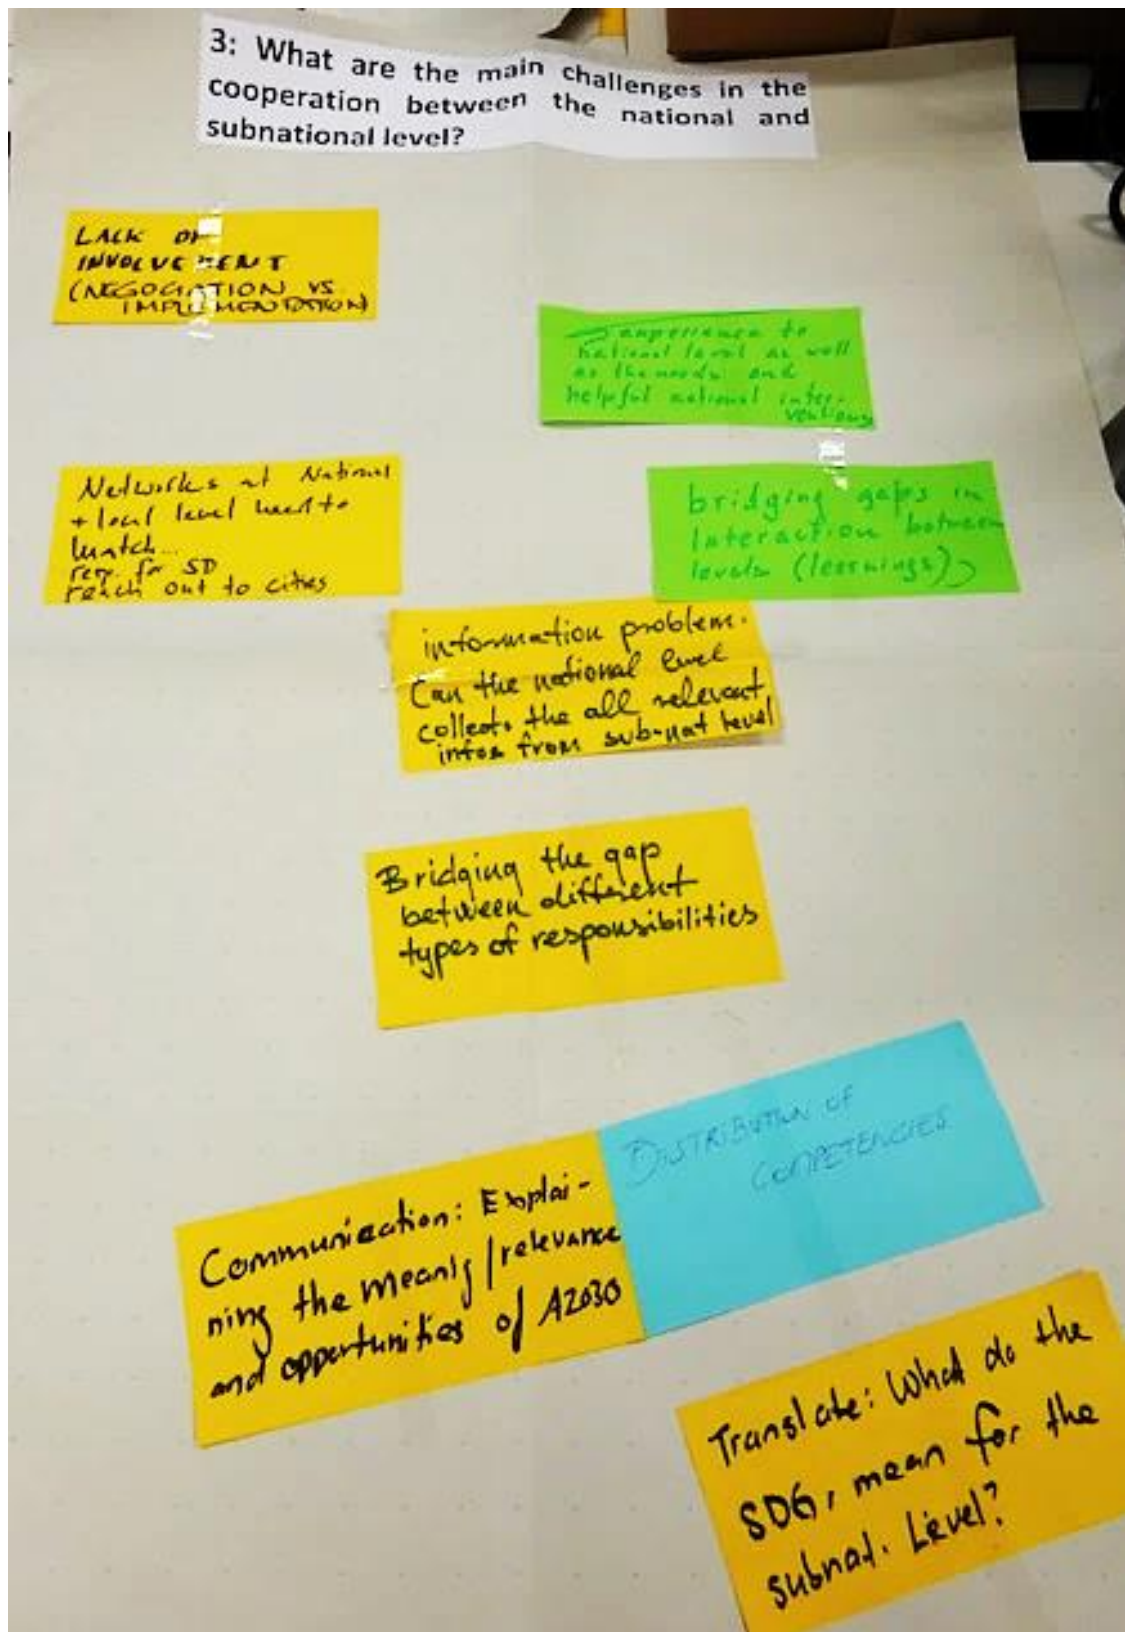 3: What are the main challenges in the
cooperation between the national and
subnational level?
LACK OF
INVOLVEMENT
(NEGOCIATION VS
IMPLEMENTATION)
experience to
national level as well
as the needs and
helpful national inter-
ventions
Networks at National
+ local level need to
match...
for SD
reach out to cities
bridging gaps in
interaction between
levels (learnings)
information problem.
Can the national level
collect the all relevant
infos from sub-nat level
Bridging the gap
between different
types of responsibilities
DISTRIBUTION OF
COMPETENCIES
Communication: Explai-
ning the meaning/relevance
and opportunities of A2030
Translate: What do the
SDGs mean for the
subnat. Level?